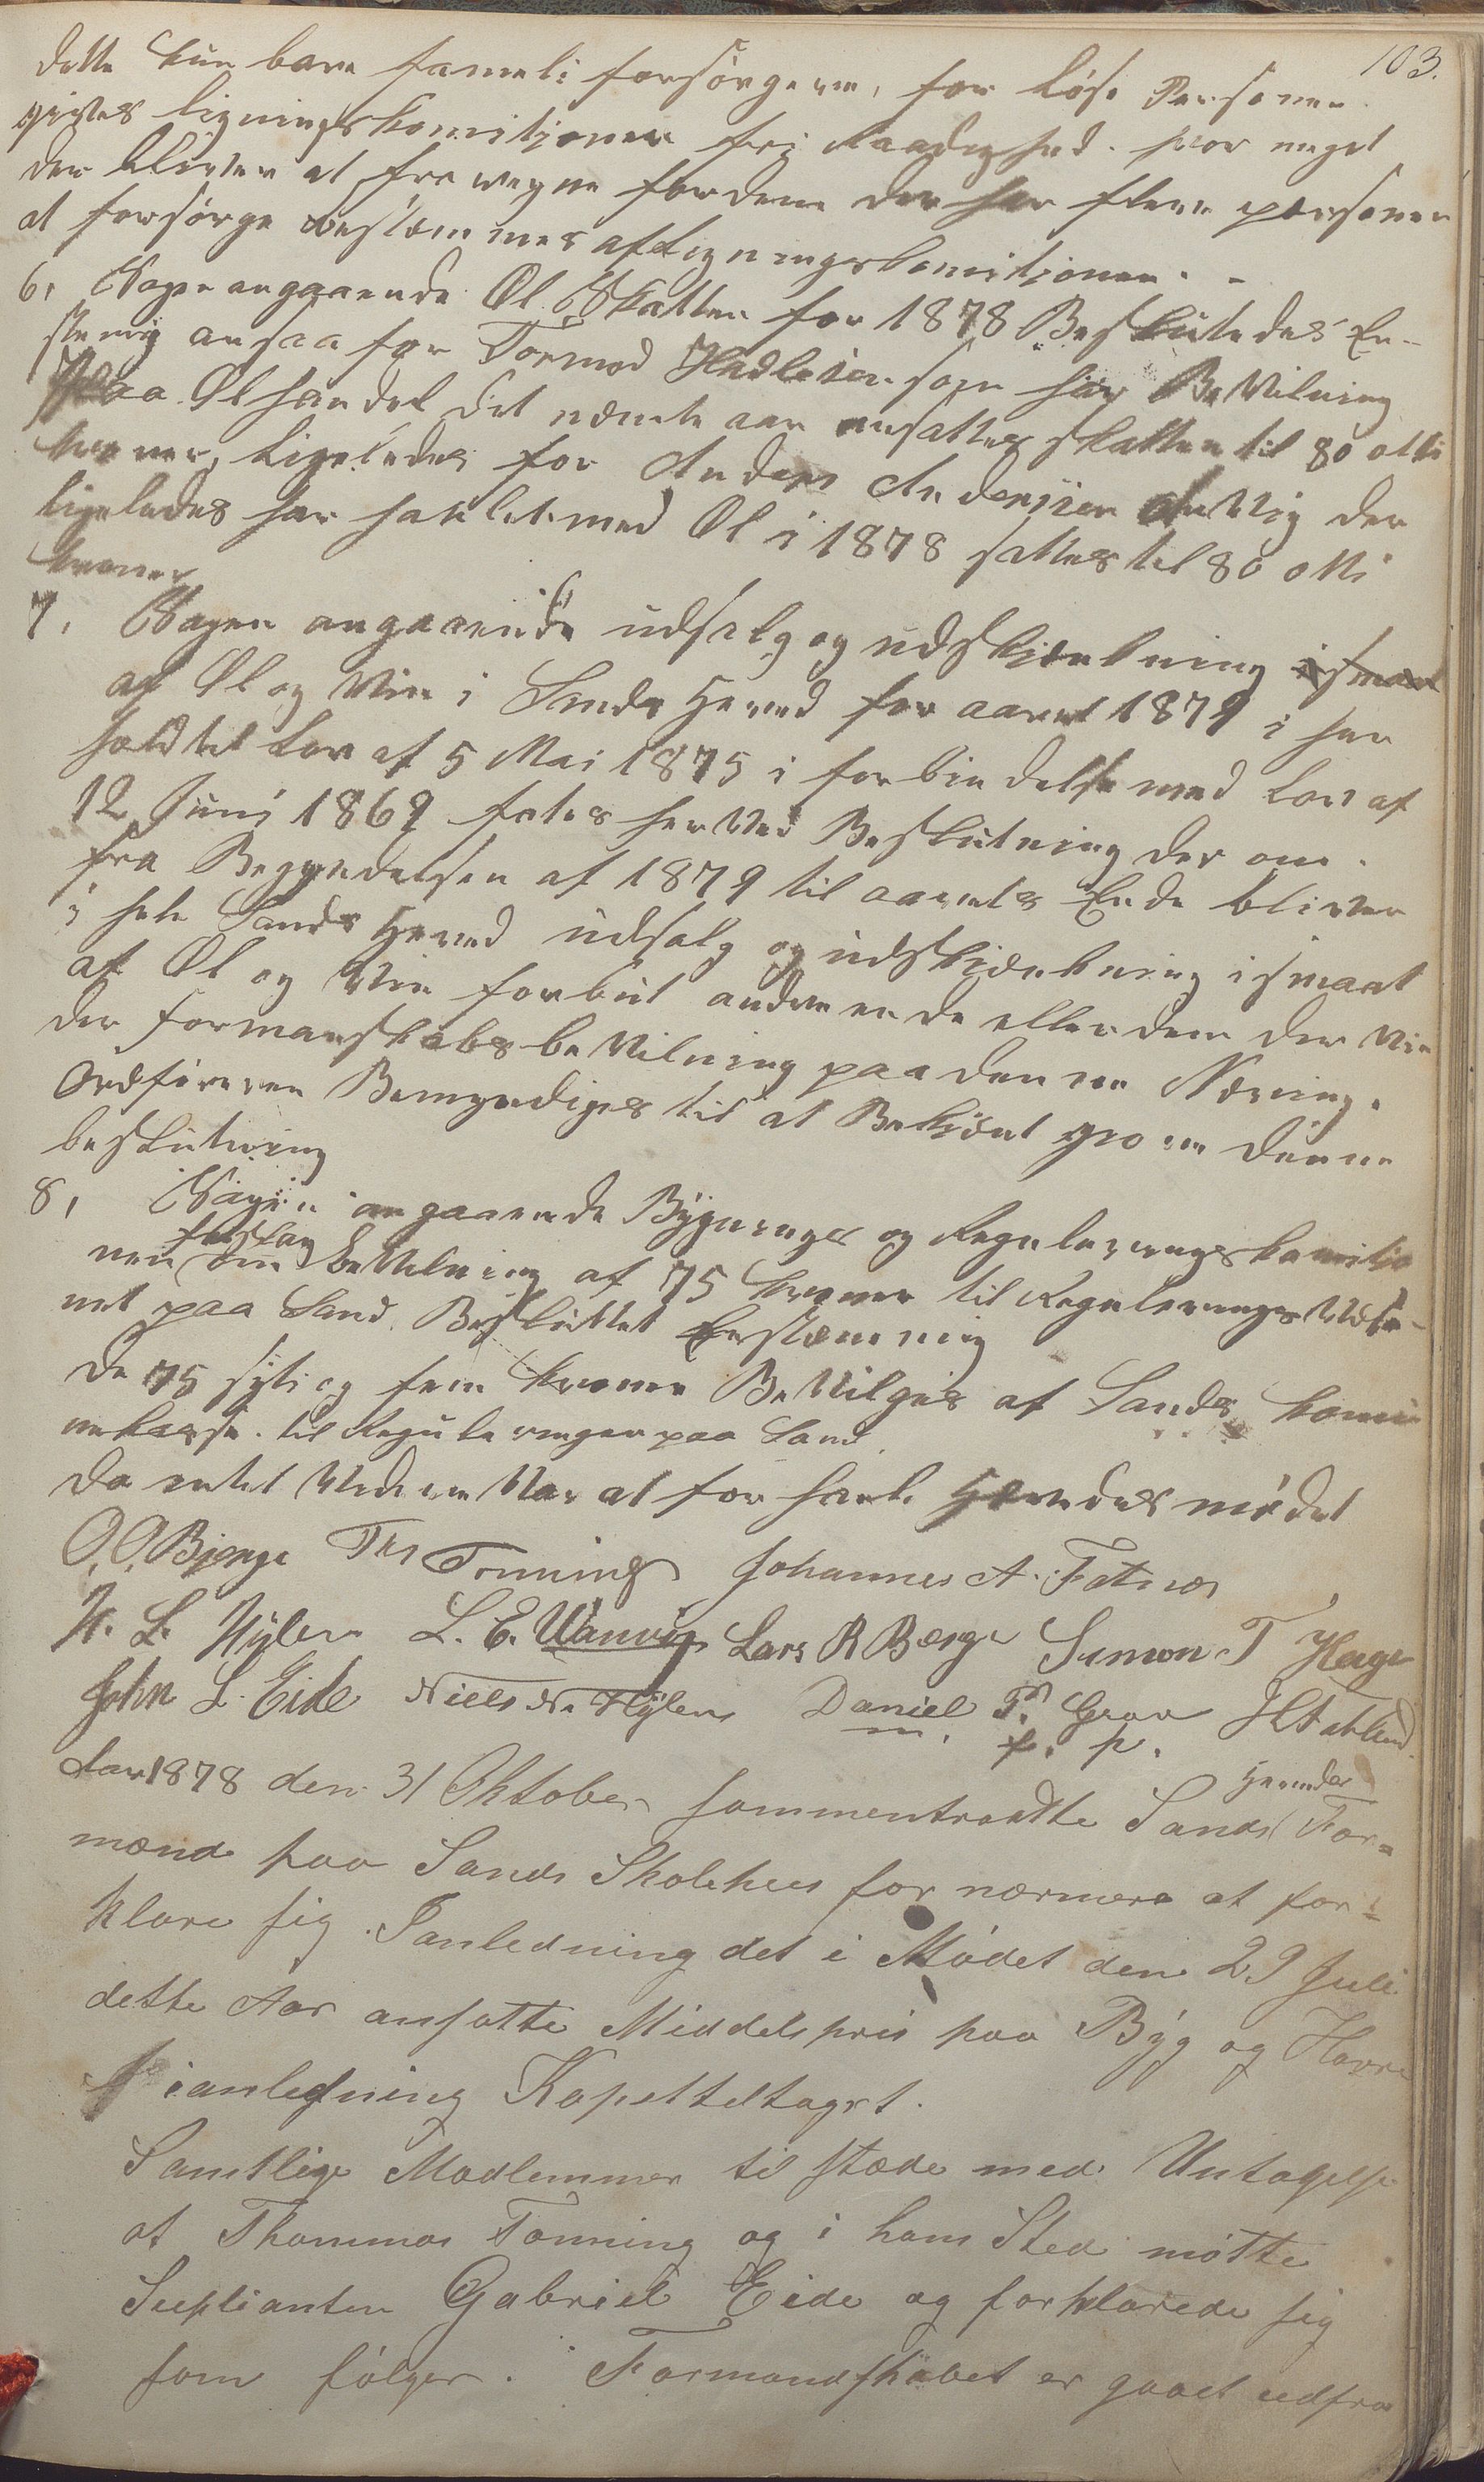 103.
dette kun bare fameli forsørgerne, for løse Personer
gives ligningskomitjonen fri Raadighed. hvor meget
der bliver at fra regne for dem der har flere personer
at forsørge bestemmes af Ligningskomitjonen. -
6, Sagen angaaende Øl Skatten for 1878 Besluttedes En-
stemig ansaa for Tormod Hadleien som har BeVilning
paa Ølhandel det nemte aar ansattes skatten til 80 otti
kroner, ligeledes for Anders Andersen AnVig der
ligeledes har handlet med Øl i 1878 sattes til 80 otti
kroner
7, Sagen angaaende udsalg og udskjenkning ismaat
af Øl og Vin i Sands Hered for aaret 1879 i hen
hold til Lov af 5 Mai 1875 i forbindelse med Lov af
12 Juni 1869 fates herVed Beslutning der om.
fra Begyndelsen af 1879 til aarets Ende bliver
i hele Sands Hered udsalg og udskjenkning ismaat
af Øl og Vin forbut andre ende eller dem der Vin
der formanskabs beVilning paa denne Næring.
Ordføreren Bemyndiges til at Bekjent gjøre denne
beslutning
8, Sagen angaaende Bygnings og Reguleringskomitio
forslag
nen om beVilning af 75 kroner til ReguleringsVæse-
net paa Sand. Besluttet Enstemmig
de 75 syti og fem kroner BeVilges af Sands komu
nekasse. til Reguleringen paa Sand.
Da intet Videre Var at for handle Hævedes mødet
O. O. Bjerge Ths Tonning Johannes A. Fatnes
N. L. Hylen L. E. Vanvig Lars R Berge Simon T Hauge
John L. Eide Niels N. Hylen Daniel T. Grov
m. f. p.
Aar 1878 den 31 Oktober sammentraadte Sands Herreder For-
mænd paa Sands Skolehus for nærmere at for-
klare sig. I anledning det i Mødet den 29 Juli
dette Aar ansatte Middelspris paa Byg og Havre
i anledning Kapeltakst.
Samtlige Medlemmer til stæde med Untagelse
af Thommas Tonning og i hans Sted møtte
Suplianten Gabriel Eide og forklarede sig
som følger. Formandskabet er gaaet udfra